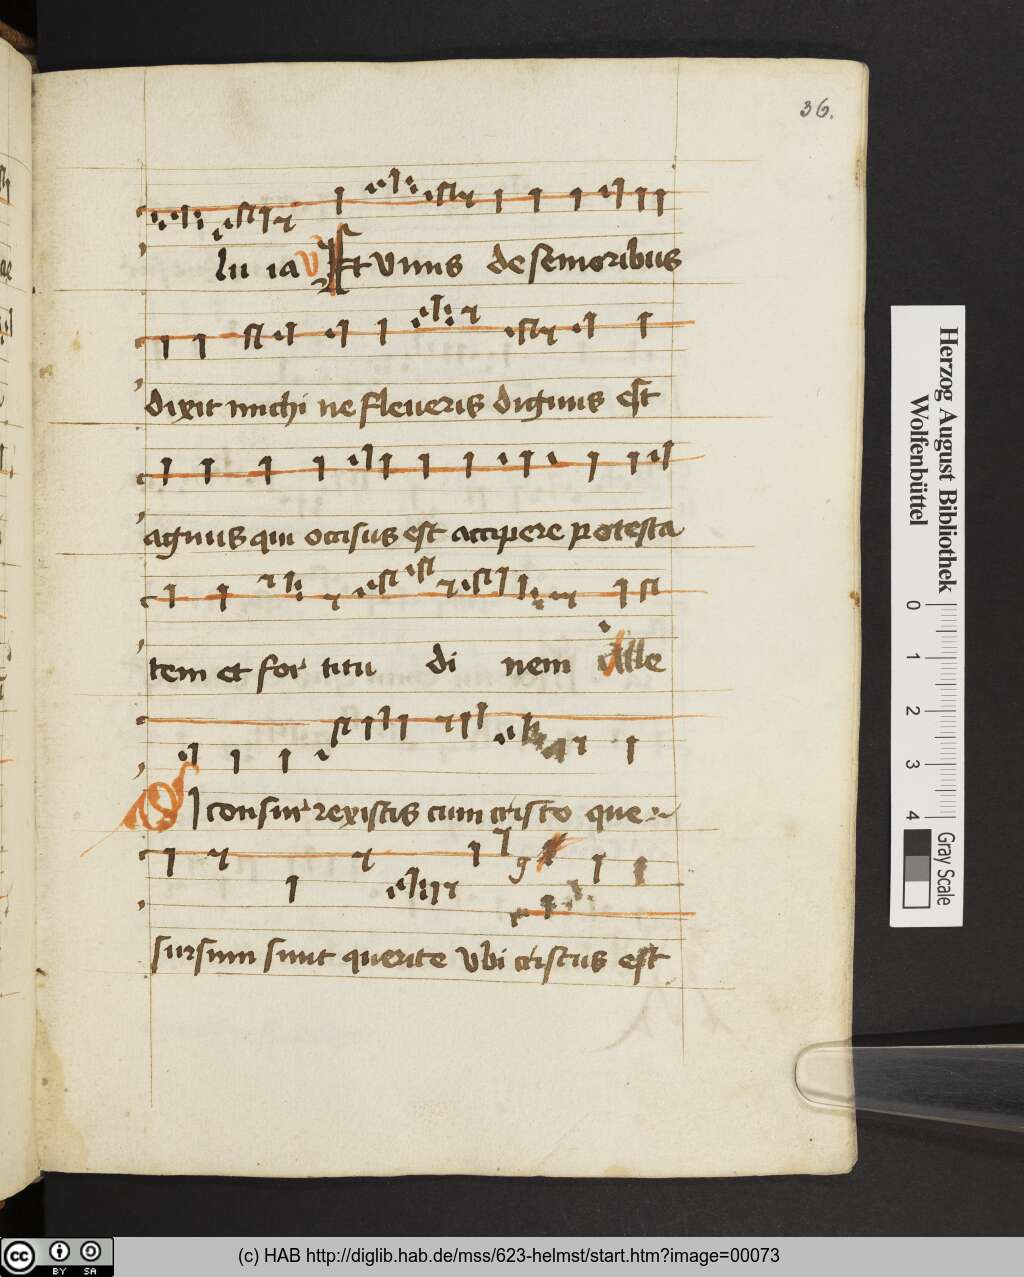 36.
lu ia V Et vnus de senioribus
dixit michi ne fleueris dignus est
agnus qui occisus est accipere potesta
tem et for titu di nem Alle
Si consurrexistis cum cristo que
sursum sunt querite vbi cristus est
Herzog August Bibliothek
Wolfenbüttel
0 1 2 3 4
Gray Scale
cc BY SA
(c) HAB http://diglib.hab.de/mss/623-helmst/start.htm?image=00073